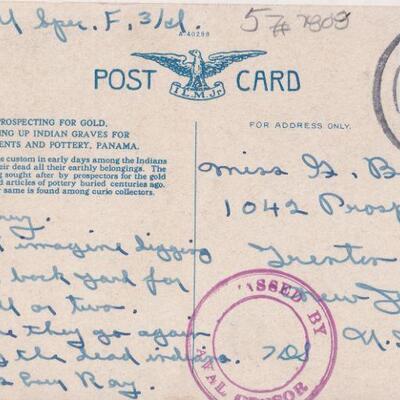 Spec. F, 3/cl.
57
A-40298
POST CARD
I.L.M.Jr.
PROSPECTING FOR GOLD,
ING UP INDIAN GRAVES FOR
ENTS AND POTTERY, PANAMA.
e custom in early days among the Indians
eir dead all their earthly belongings. The
g sought after by prospectors for the gold
d articles of pottery buried centuries ago.
r same is found among curio collectors.
FOR ADDRESS ONLY.
Miss G. B
1042 Prosp
Trenton
New J
imagine digging
back yard for
or two.
they go again
the dead indians.
Ray.
SSED BY
AVAL CENSOR